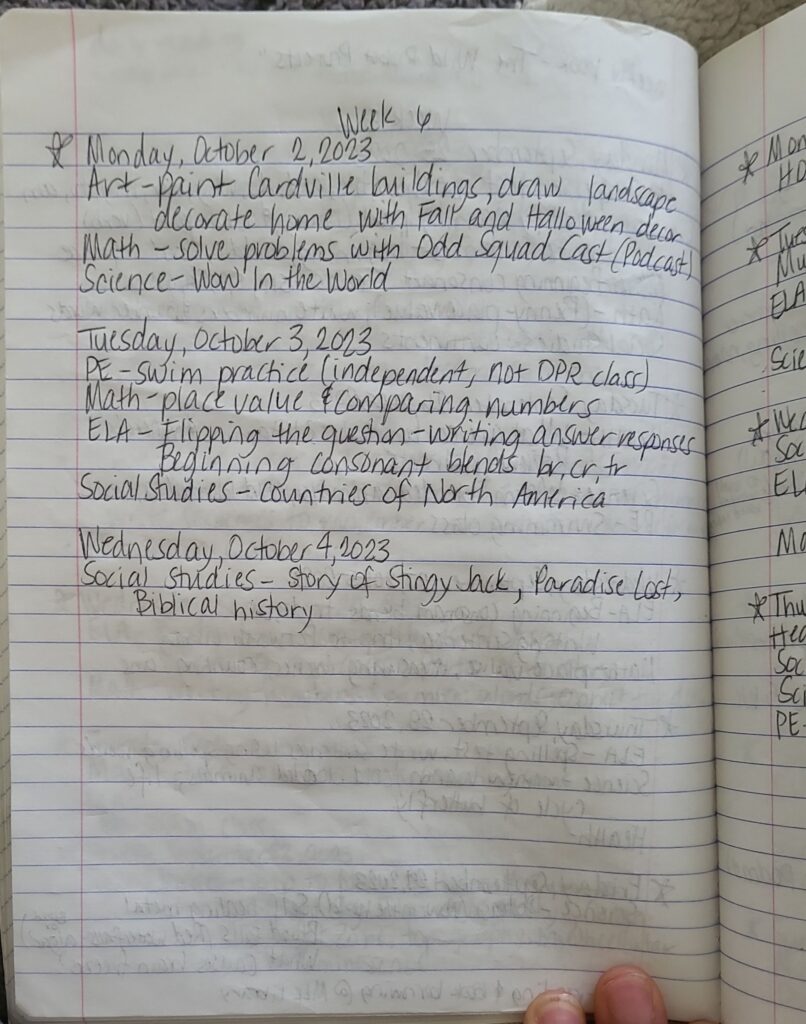 Week 6
☆ Monday, October 2, 2023
Art - paint Cardville buildings, draw landscape
decorate home with Fall and Halloween decor
Math - solve problems with Odd Squad Cast (Podcast)
Science - Wow In the World
Tuesday, October 3, 2023
PE - swim practice (independent, not DPR class)
Math - place value & comparing numbers
ELA - Flipping the question - writing answer responses
Beginning consonant blends br, cr, tr
Social Studies - countries of North America
Wednesday, October 4, 2023
Social Studies - Story of Stingy Jack, Paradise Lost,
Biblical history
☆ Mon
HD
☆ Tues
Mu
ELA
Scie
☆ Wed
Soc
ELA
Ma
☆ Thu
Hea
Soc
Sci
PE-